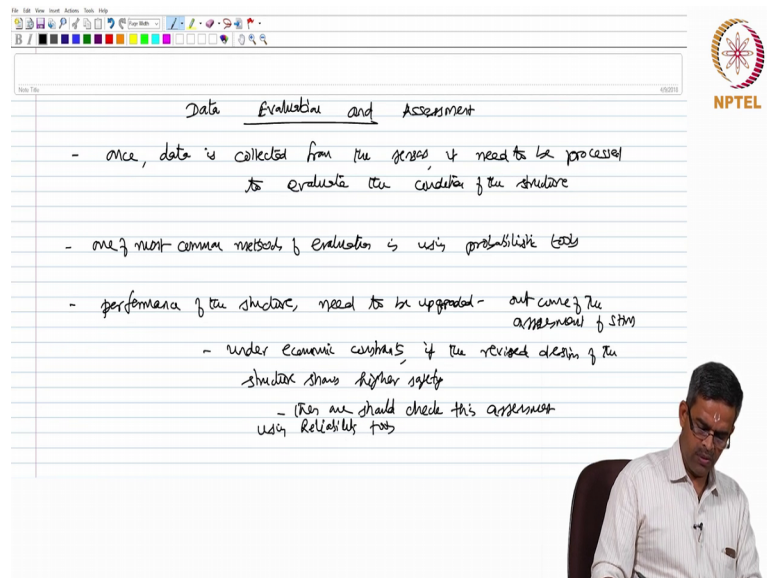 File Edit View Insert Actions Tools Help
Page Width
B I
NPTEL
Note Title
4/9/2018
Data Evaluation and Assessment
- once, data is collected from the sensors, it need to be processed
to evaluate the condition of the structure
- one of most common methods of evaluation is using probabilistic tools
- performance of the structure, need to be upgraded - out come of the
assessment of SHM
- under economic constraints, if the revised design of the
structure shows higher safety
- then one should check this assessment
using Reliability tools